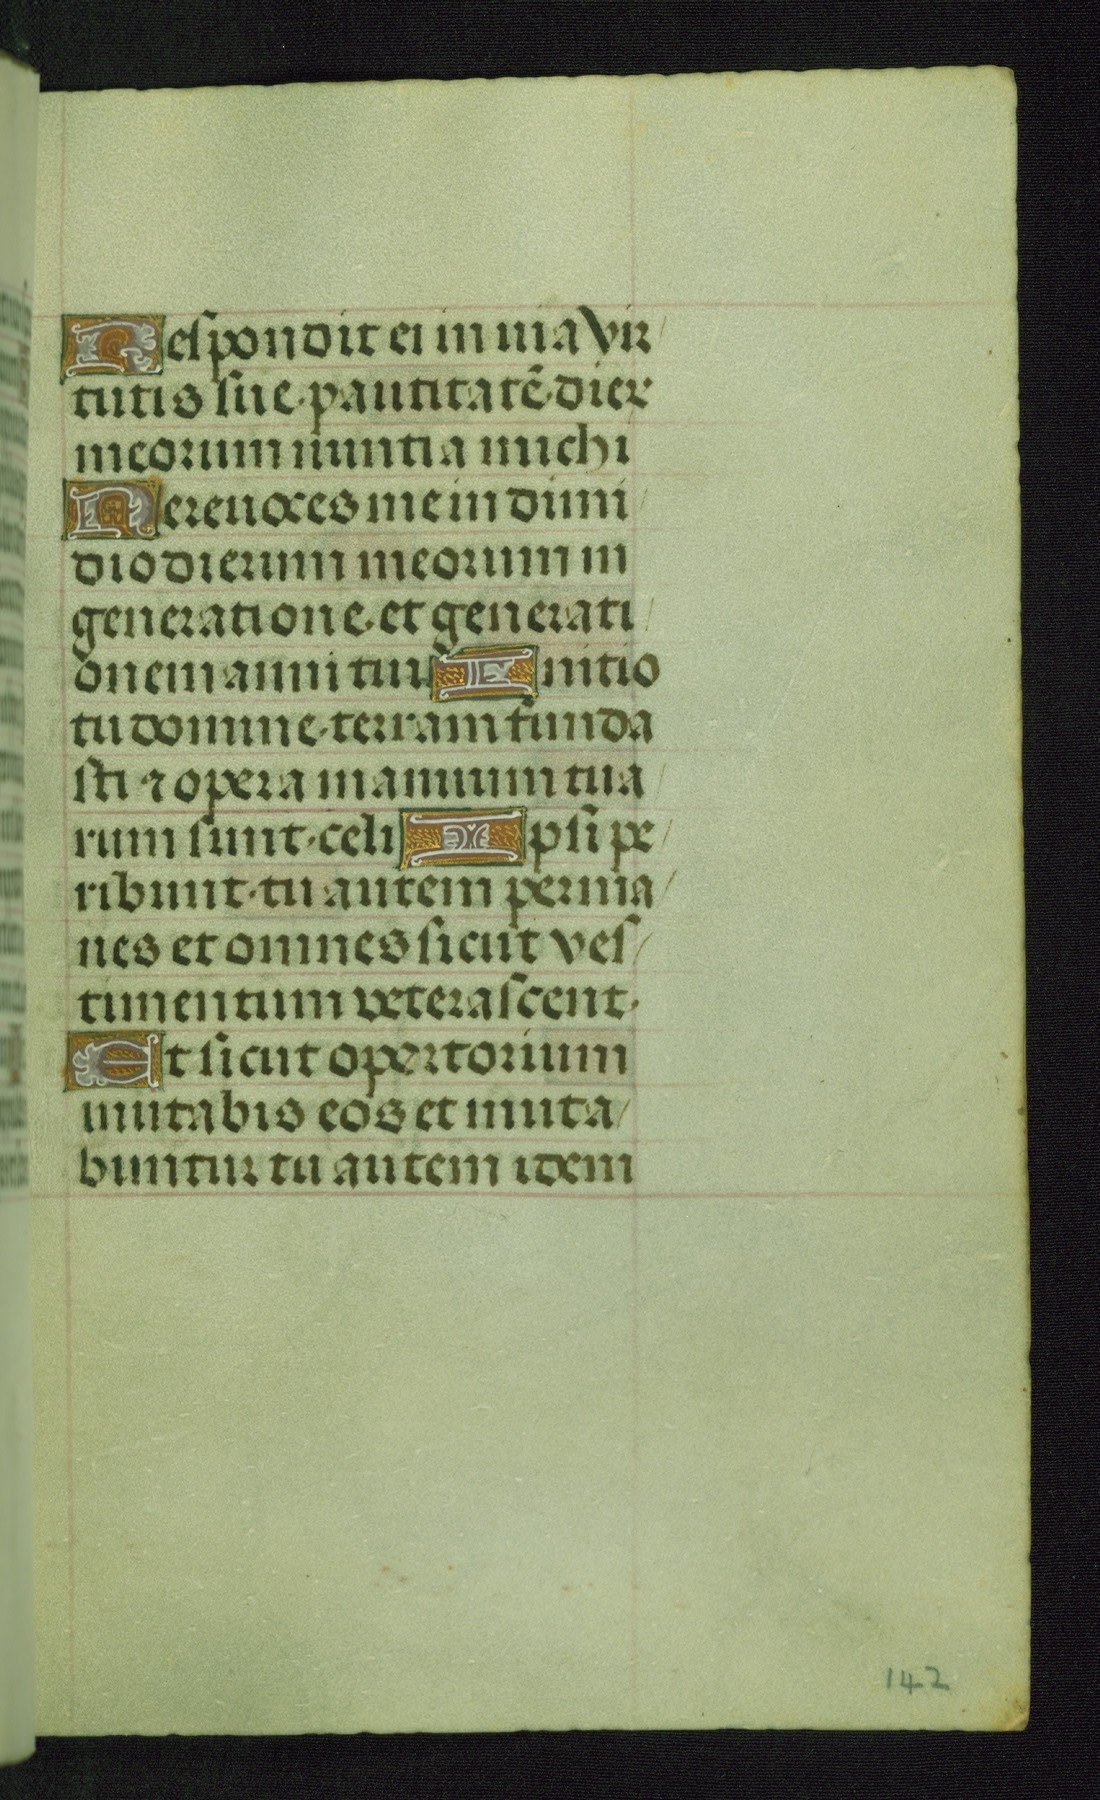 Respondit ei in uia vir/
tutis sue·pautitatē·dier
meorum nuntia michi
Ne reuoces me in dimi/
dio dierum meorum in
generatione·et generati/
onem anni tui Initio
tu domine·terram funda
sti ⁊ opera manuum tua/
rum sunt·celi Ipsi pe/
ribunt·tu autem perma/
nes et omnes sicut ves/
timentum veterascent·
Et sicut opertorium
mutabis eos et muta/
buntur tu autem idem
142